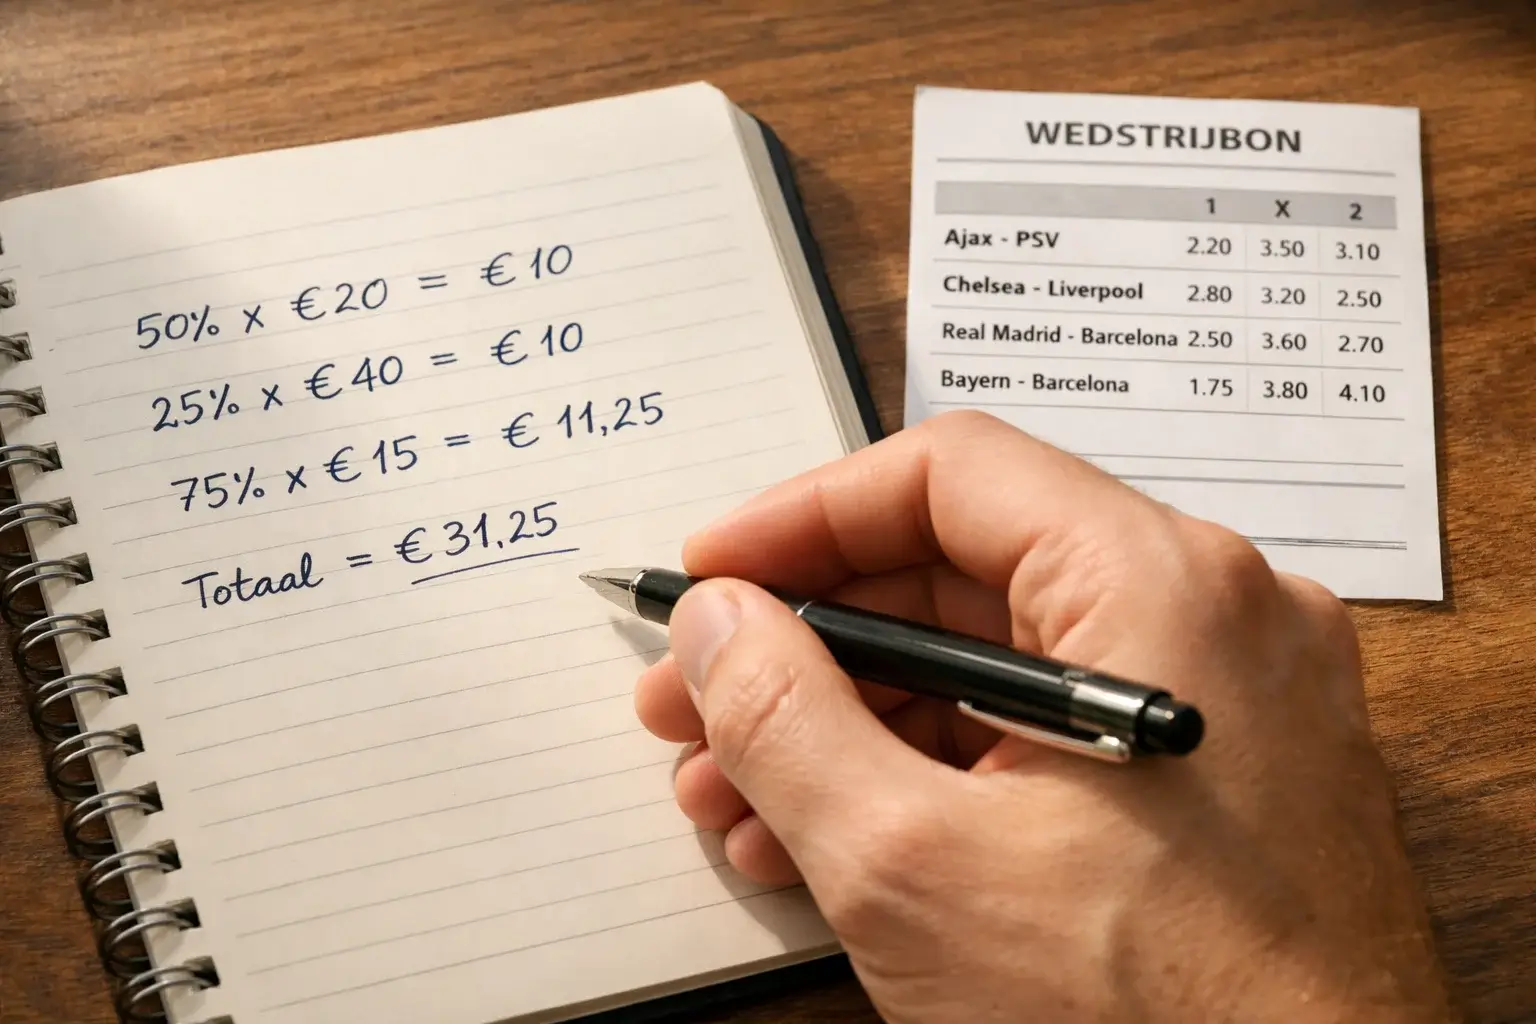 50% x € 20 = € 10
25% x € 40 = € 10
75% x € 15 = € 11,25
Totaal = € 31,25
WEDSTRIJBON
1 X 2
Ajax - PSV 2.20 3.50 3.10
Chelsea - Liverpool 2.80 3.20 2.50
Real Madrid - Barcelona 2.50 3.60 2.70
Bayern - Barcelona 1.75 3.80 4.10